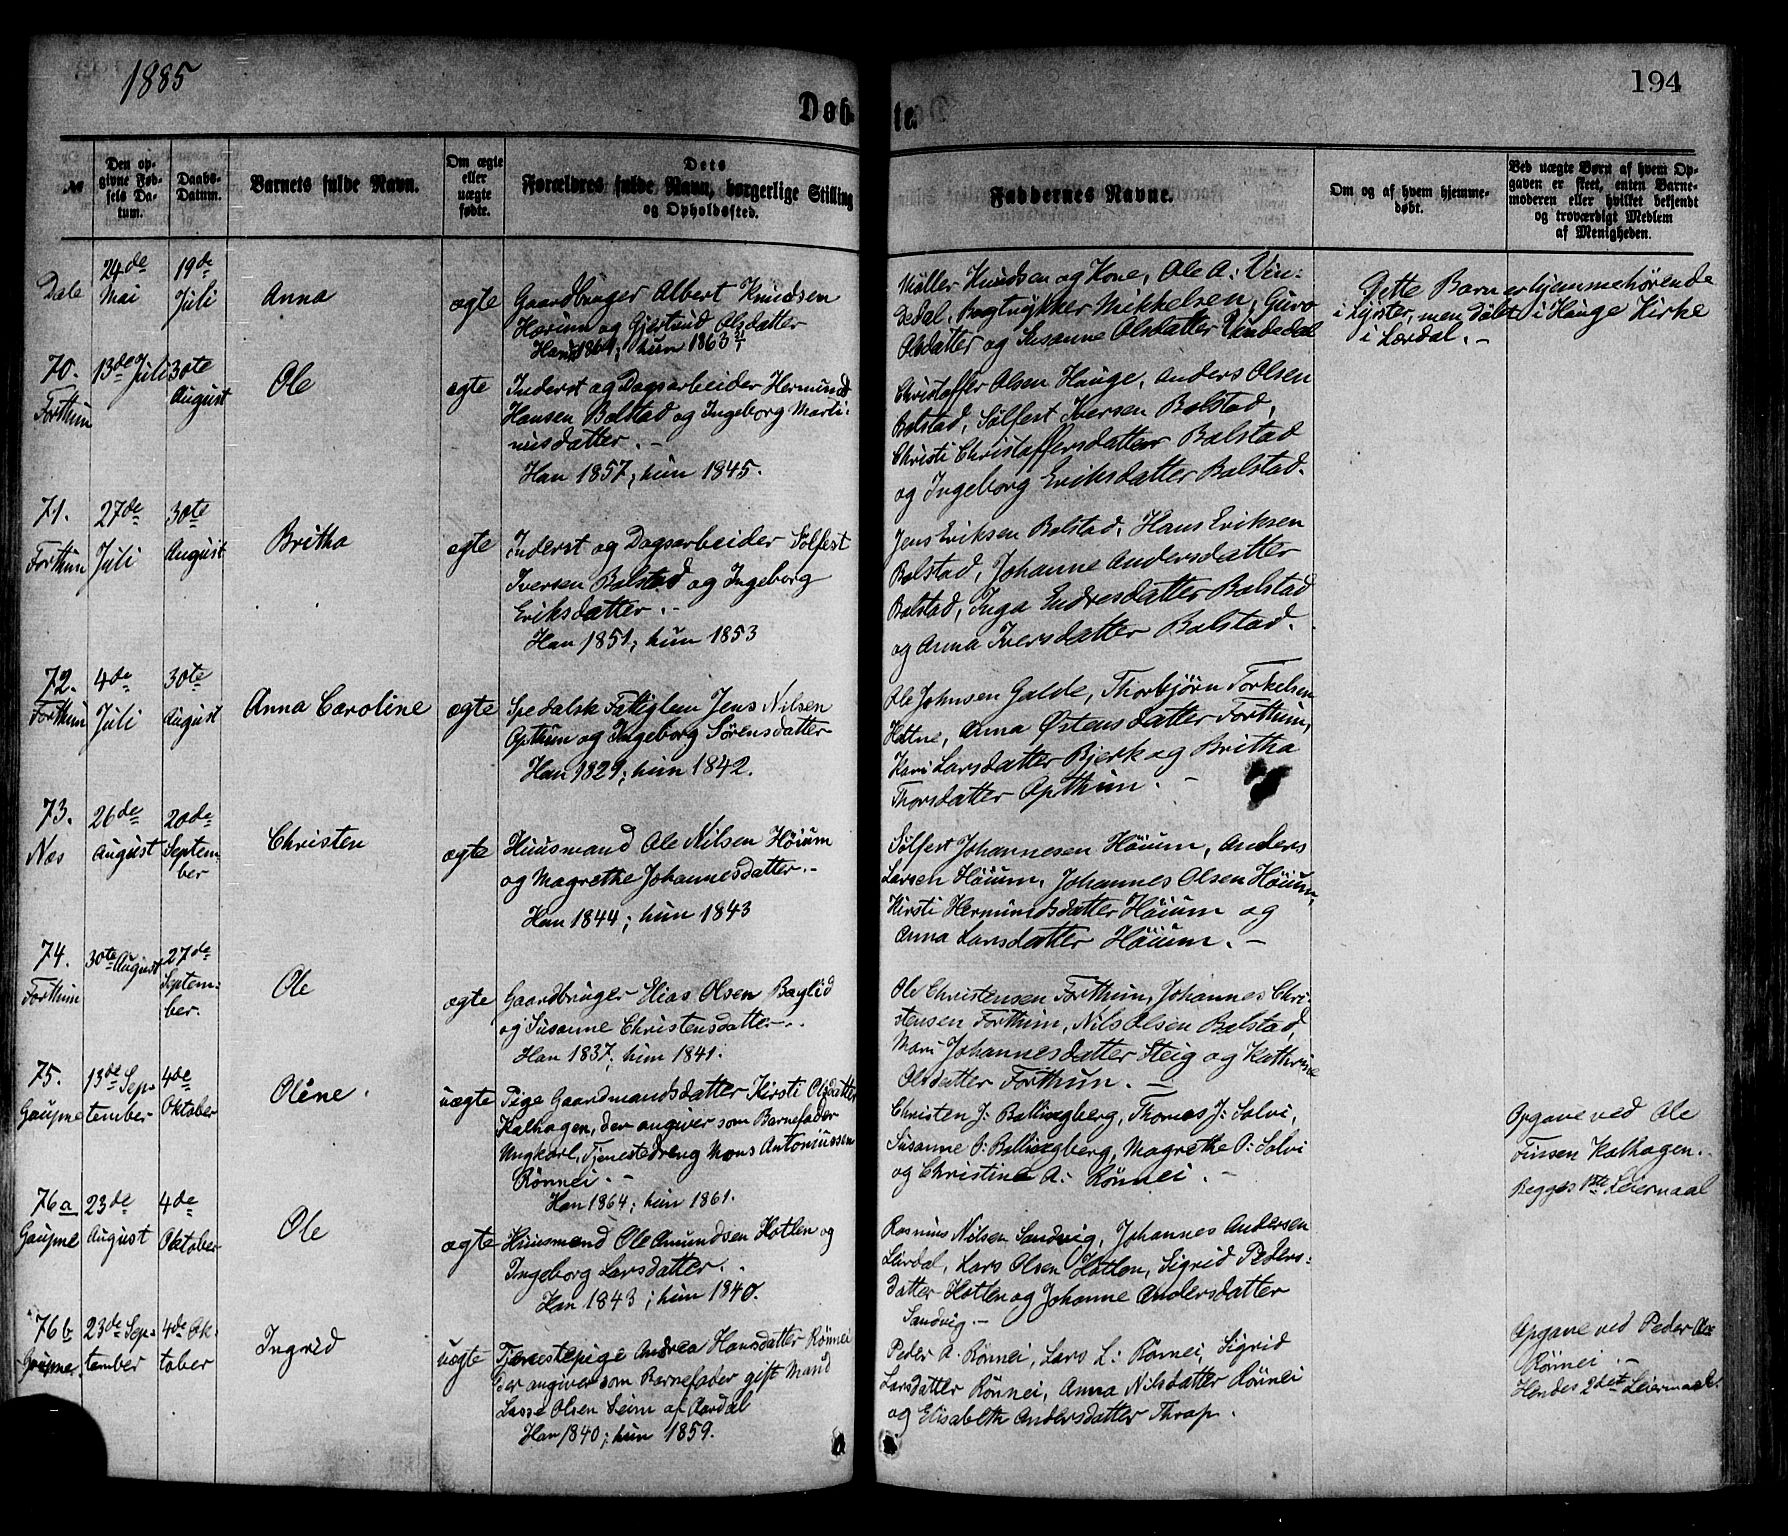 1885
Døb-
te.
194
№
Den op-
givne Fød-
sels Da-
tum.
Daabs-
Datum.
Barnets fulde Navn.
Om ægte
eller
uægte
fødte.
Dets
Forældres fulde Navn, borgerlige Stilling
og Opholdssted.
Faddernes Navne.
Om og af hvem hjemme-
døbt.
Ved uægte Børn af hvem Op-
gaven er skeet, enten Barne-
moderen eller hvilket bekjendt
og troværdigt Medlem
af Menigheden.
Dale
24de
Mai
19de
Juli
Anna
ægte
Gaardbruger Albert Knudsen
Hærum og Gjertrud Olsdatter
Han 1861, hun 1863
Møller Knudsen og Kone, Ole A: Vin-
dedal, Bogtrykker Mikkelsen, Guro
Olsdatter og Susanne Olsdatter Vindedal
Dette Barn er hjemmehørende
i Lyster, men døbt i Hauge Kirke
i Lærdal. -
70.
Forthun
13de Juli
30te
August
Ole
ægte
Inderst og Dagsarbeider Hermund
Hansen Bolstad og Ingeborg Marti-
nusdatter. -
Han 1857, hun 1845.
Christoffer Olsen Hauge, Anders Olsen
Bolstad, Sølfest Iversen Bolstad,
Christi Christoffersdatter Bolstad
og Ingeborg Eriksdatter Bolstad.
71.
Forthun
27de
Juli
30te
August
Britha
ægte
Inderst og Dagsarbeider Sølfest
Iversen Bolstad og Ingeborg
Eriksdatter. -
Han 1851, hun 1853
Jens Eriksen Bolstad, Hans Eriksen
Bolstad, Johanne Andersdatter
Bolstad, Inga Endresdatter Bolstad
og Anna Iversdatter Bolstad.
72.
Forthun
4de
Juli
30te
August
Anna Caroline
ægte
Spedalsk Fattiglem Jens Nilsen
Opthun og Ingeborg Sørensdatter
Han 1829, hun 1842.
Ole Johnsen Galde, Thorbjørn Torkelsen
Anna Østensdatter Forthun,
Kari Larsdatter Bjerk og Britha
Thorsdatter Opthun. -
73.
Næs
26de
August
20de
Septem-
ber
Christen
ægte
Huusmand Ole Nilsen Høium
og Magrethe Johannesdatter. -
Han 1844; hun 1843
Sølfest Johannesen Høium, Anders
Larsen Høium, Johannes Olsen Høium,
Kirsti Hermundsdatter Høium og
Anna Larsdatter Høium. -
74.
Forthun
30te August
27de
Septem-
ber.
Ole
ægte
Gaardbruger Elias Olsen Bøglid
og Susanne Christensdatter -.
Han 1837, hun 1841.
Ole Christensen Forthun, Johannes Chri-
stensen Forthun, Nils Olsen Bolstad,
Mari Johannesdatter Steig og Kathrine
Olsdatter Forthun. -
75.
Gaupne
13de Sep-
tember
4de
Oktober
Oline.
uægte
Pige Gaardmandsdatter Kirsti Olsdatter
Kalhagen, der angiver som Barnefader
Ungkarl, Tjenestedreng Mons Antoniussen
Rönnei. -
Han 1864; hun 1861.
Christen J: Bollingberg, Thomas J: Solvi,
Susanne P: Bollingberg, Magrethe P: Solvi
og Christine A: Rönnei -
Opgave ved Ole
Finsen Kalhagen. -
Begges 1ste Leiermaal
76a
Gaupne
23de
August
4de
Oktober
Ole
ægte
Huusmand Ole Amundsen Hotlen og
Ingeborg Larsdatter. -
Han 1843; hun 1840.
Rasmus Nilsen Sandvig, Johannes Andersen
Leirdal, Lars Olsen Hotlen, Sigrid Peders-
datter Hotlen og Johanne Andersdatter
Sandvig. -
76b
Gaupne
23de Sep-
tember
4de Ok-
tober
Ingrid
uægte
Tjenestepige Andrea Hansdatter Rönnei
der angiver som Barnefader gift Mand
Lasse Olsen Seim af Aardal
Han 1840; hun 1859.
Peder A. Rönnei, Lars L: Rönnei, Sigrid
Larsdatter Rönnei, Anna Nilsdatter Rönnei
og Elisabeth Andersdatter Thrap.
Opgave ved Peder
Rönnei. -
Hendes 2det Leiermaal.